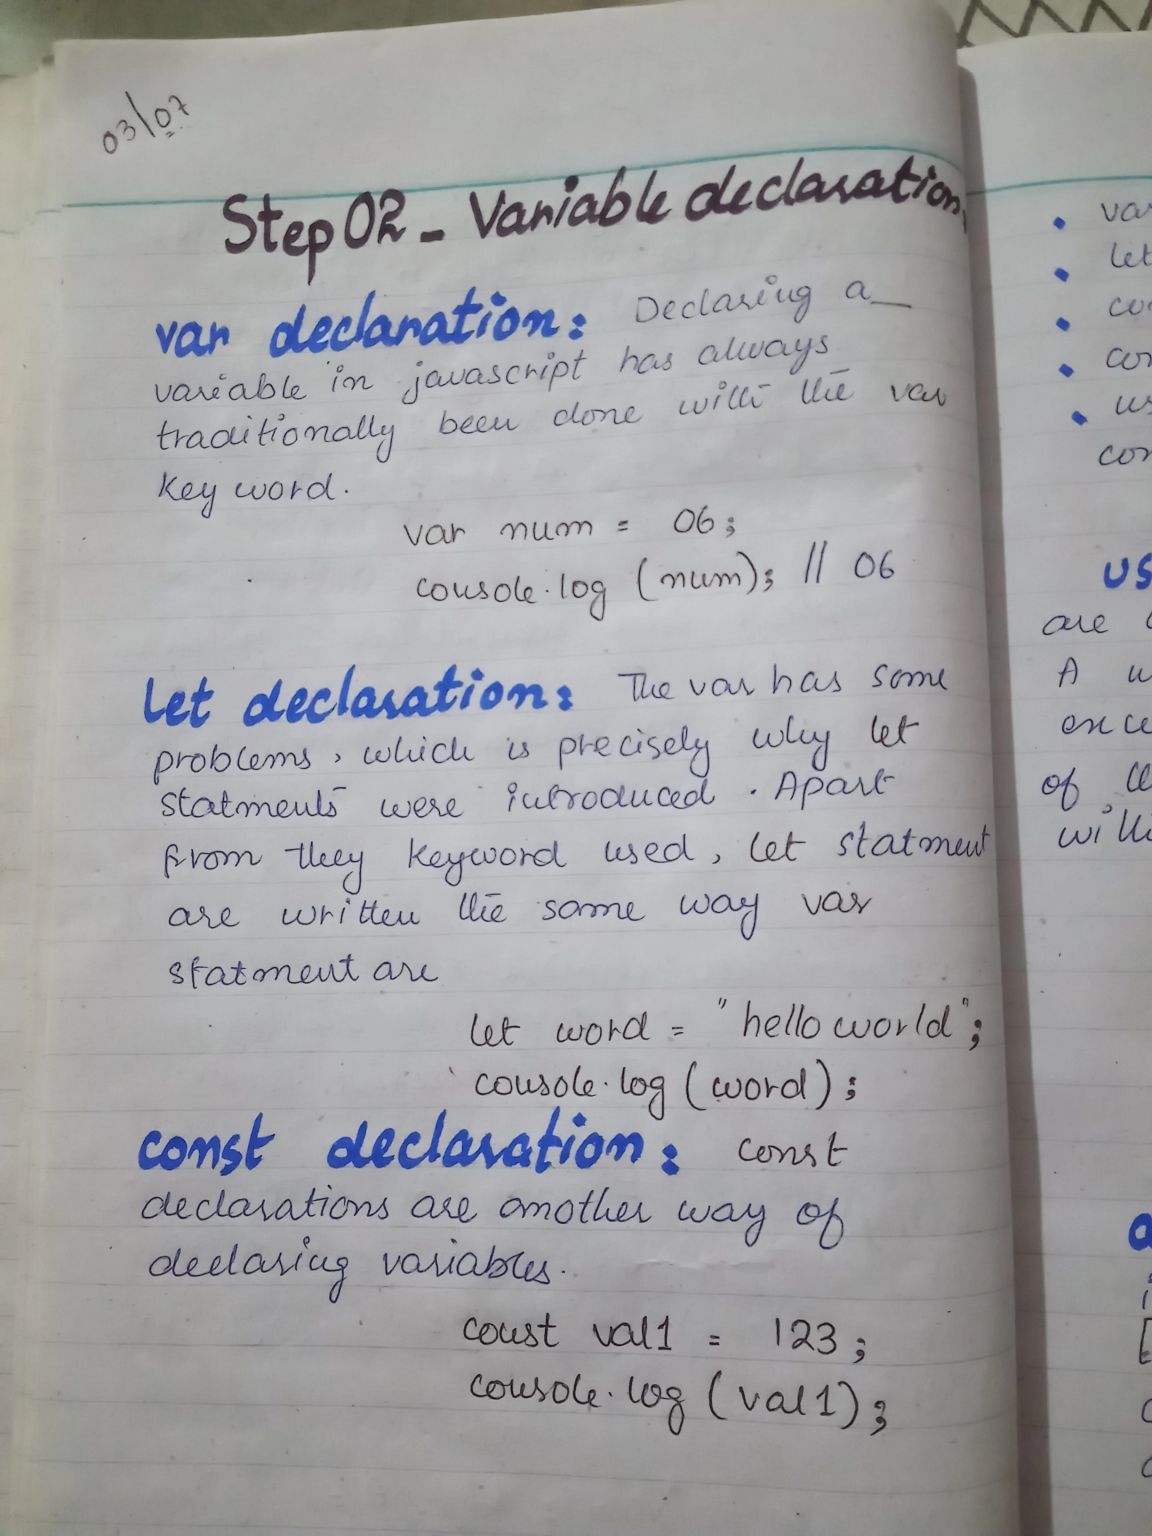 03\07
Step 02 - Variable declaration,
var declaration: Declaring a_
variable in javascript has always
traditionally been done with the var
key word.
var num = 06;
console.log (num); // 06
let declaration: The var has some
problems, which is precisely why let
statments were introduced. Apart
from they keyword used, let statment
are written the same way var
statment are
let word = "hello world";
console.log (word);
const declaration: const
declarations are another way of
declaring variables.
const val1 = 123;
console.log (val1);
let
us
are
A
of